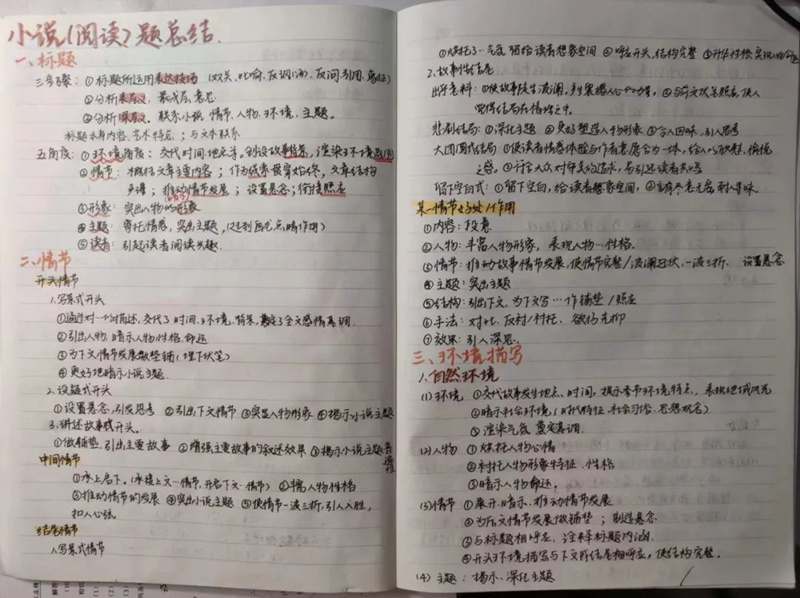 小说(阅读)题总结.
一、标题
三步骤: ①标题所运用表达技巧 (双关、比喻、反讽、反问、引用、象征)
②分析表层义, 最浅层意思
③分析深层义, 联系小说 情节、人物、环境、主题。
标题本身内容、艺术特点; 与文本联系
五角度: ①环境角度: 交代时间、地点等, 创设故事背景, 渲染环境氛围
②情节: 概括文章主要内容; 作为线索贯穿始终, 文章结构
严谨; 推动情节发展; 设置悬念; 衔接照应
③形象: 突出人物的形象
④主题: 寄托情感, 突出主题, (起到画龙点睛作用)
⑤读者: 引起读者阅读兴趣.
二、情节
开头情节
1.写景式开头
①通过对…的描述, 交代了时间、环境、背景, 奠定了全文感情基调.
②引出人物, 暗示人物性格、命运
③为下文情节发展做铺垫 (埋下伏笔)
④更好地暗示小说主题.
2.设疑式开头
①设置悬念, 引发思考 ②引出下文情节 ③突显人物形象 ④揭示小说主题
3.讲述故事式开头.
①做铺垫, 引出主要故事 ②增强主要故事的叙述效果 ③揭示小说主题
中间情节
①承上启下。(承接上文…情节, 开启下文…情节) ②丰富人物性格
③推动情节的发展 ④突出小说主题 ⑤使情节一波三折, 引人入胜,
扣人心弦。
结尾情节
1.写景式情节
①烘托了…气氛, 留给读者想象空间 ②呼应开头, 结构完整 ③升华性格
2.故事性结尾
出乎意料: ①使故事陡生波澜, 震撼人心的力量, ②与前文伏笔照应, 使人
觉得结局在情理之中.
悲剧结局: ①深化主题 ②更好塑造人物形象 ③令人回味, 引人思考
大团圆式结局: ①使读者情感体验与作者意愿合为一体, 给人以欣慰、愉悦
之感. ②符合大众对审美的追求, 易引起读者共鸣
留下空白式: ①留下空白, 给读者想象空间, ②言有尽意无穷, 耐人寻味.
某一情节好处/作用
①内容: 段意
②人物: 丰富人物形象, 表现人物…性格.
③情节: 推动故事情节发展, 使情节完整/波澜起伏、一波三折. 设置悬念
④主题: 突出主题
⑤结构: 引出下文, 为下文写…作铺垫/照应
⑥手法: 对比, 反衬/衬托、欲扬先抑
⑦效果: 引人深思.
三、环境描写
1.自然环境
(1) 环境 ①交代故事发生地点、时间, 揭示季节环境特点, 表现地域风光
②暗示社会环境 (时代特征、社会习俗、思想观念)
③渲染气氛, 奠定基调.
(2)人物 ①烘托人物心情
②衬托人物形象特征、性格
③暗示人物命运。
(3)情节 ①展开、暗示、推动情节发展
②为后文情节发展做铺垫; 制造悬念
③与标题相呼应, 诠释标题内涵.
④开头环境描写与下文的结尾相呼应, 使结构完整。
(4) 主题: 揭示、深化主题